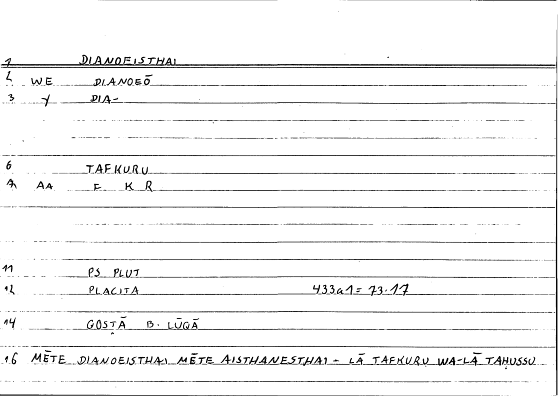 1 DIANOEISTHAI
2 WE DIANOEŌ
3 Y DIA-
6 TAFKURU
A AA F K R
11 PS PLUT
12 PLACITA 433a1 = 73.17
14 GOSṬĀ B. LŪQĀ
16 MĒTE DIANOEISTHAI MĒTE AISTHANESTHAI - LĀ TAFKURU WA-LĀ TAḤUSSU